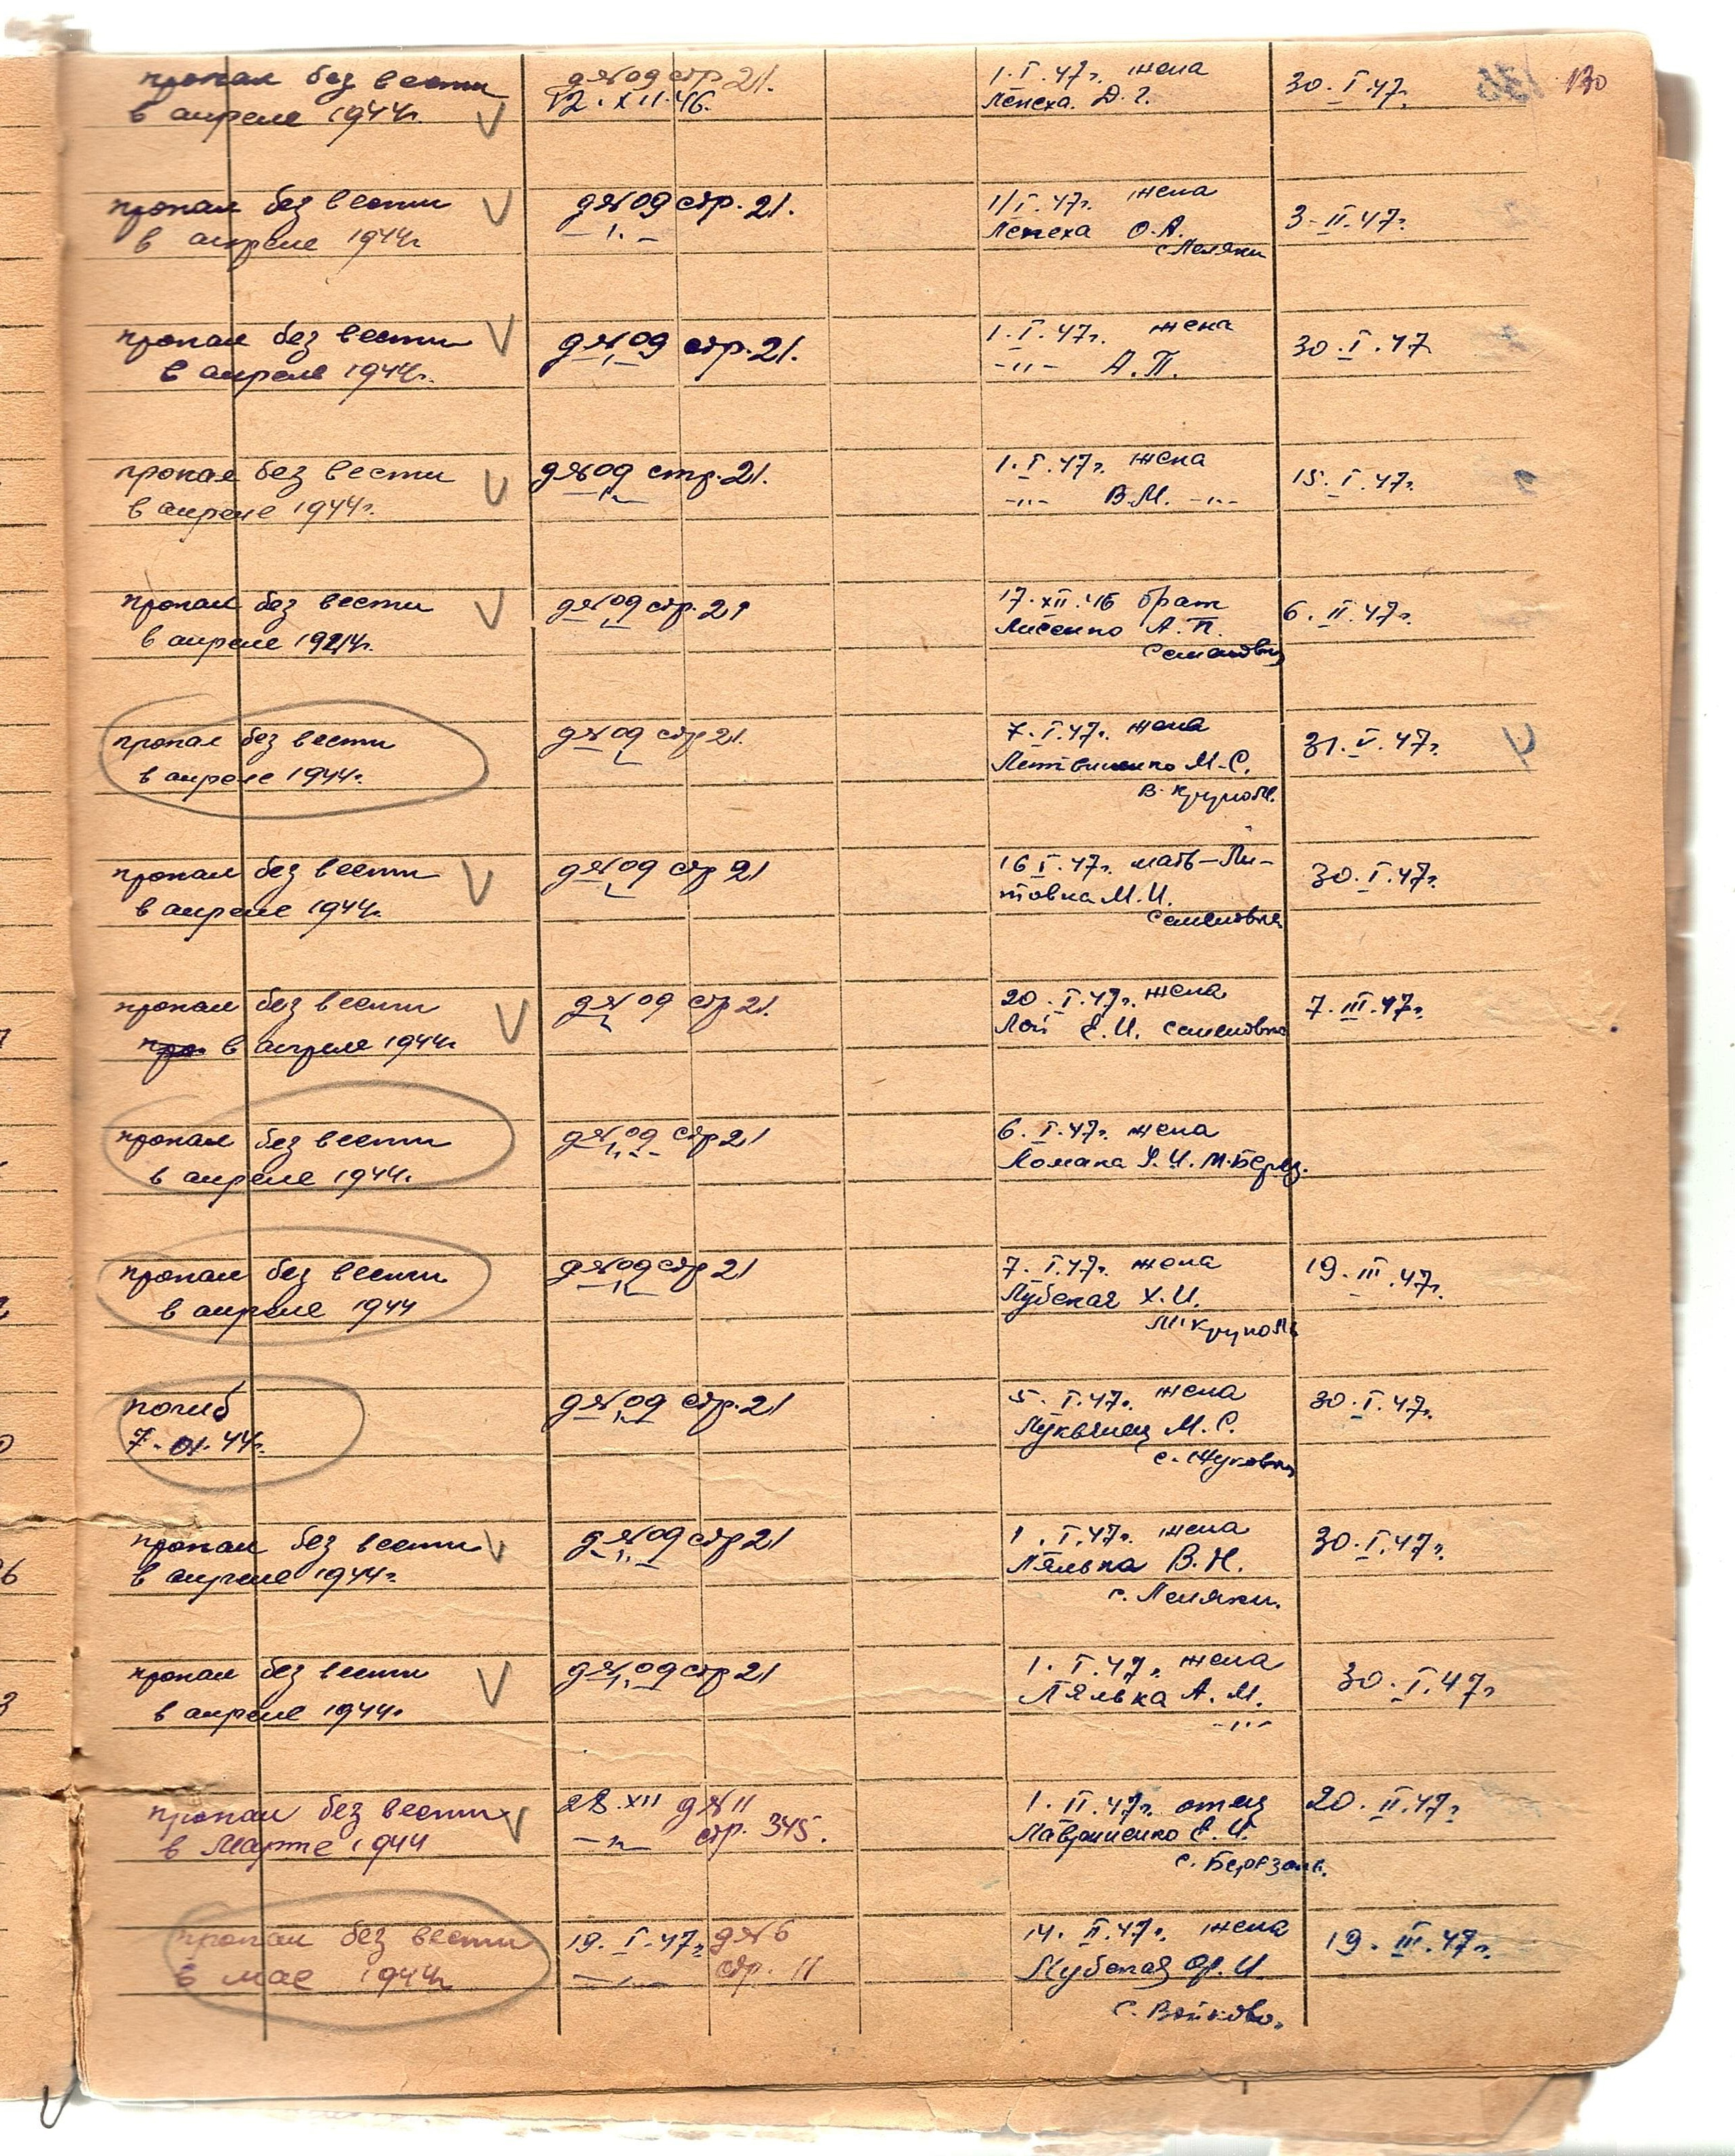 пропал без вести д№09 стр 21. 1.I.47г. жена 30.I.47г. 130
в апреле 1944г. 12.XII.46. Лепеха Д.Г.
пропал без вести д№09 стр. 21. 1/I.47г. жена 3-II.47г.
в апреле 1944г -"- Лепеха О.А.
с Леляки
пропал без вести д№09 стр. 21. 1.I.47г. жена 30.I.47
в апреле 1944г. -"- А.П.
пропал без вести д№09 стр. 21. 1.I.47г. жена 15.I.47г.
в апреле 1944г. -"- В.М. -"-
пропал без вести д№09 стр. 21 17.XII.46 брат 6.II.47г.
в апреле 1944г. Лисенко А.П.
Семеновка
пропал без вести д№09 стр 21. 7.I.47г. жена 31.V.47г.
в апреле 1944г. Литвиненко М.С.
В. Круполь
пропал без вести д№09 стр 21 16 I.47г. мать-Ли-
в апреле 1944г. товка М.И. 30.I.47г.
Семеновка
пропал без вести д№09 стр 21. 20.I.47г. жена 7.III.47г.
в апреле 1944г Лой Е.И. Семеновка
пропал без вести д№09 стр 21 6.I.47г. жена
в апреле 1944г. Ломака У.И. М.Берез.
пропал без вести д№09 стр 21 7.I.47г. жена 19.III.47г.
в апреле 1944 Лубская Х.И.
М Круполь
погиб д№09 стр. 21 5.I.47г. жена 30.I.47г.
44г. Лукьянец М.С.
с. Жуковка
пропал без вести д№09 стр 21 1.I.47г. жена 30.I.47г.
в апреле 1944г. Лялька В.Н.
с. Леляки.
пропал без вести д№09 стр 21 1.I.47г. жена 30.I.47г
в апреле 1944г. Лялька А.М.
-"-
пропал без вести 28.XII д№11 1.II.47г. отец 20.II.47г.
в Марте 1944 -"- стр. 345. Лавриненко Е.И.
с. Березань.
пропал без вести 19.I.47г. д№6 14.II.47г. жена 19.III.47г.
в мае 1944г -"- стр. 11 Лубская И.
с. Войково.